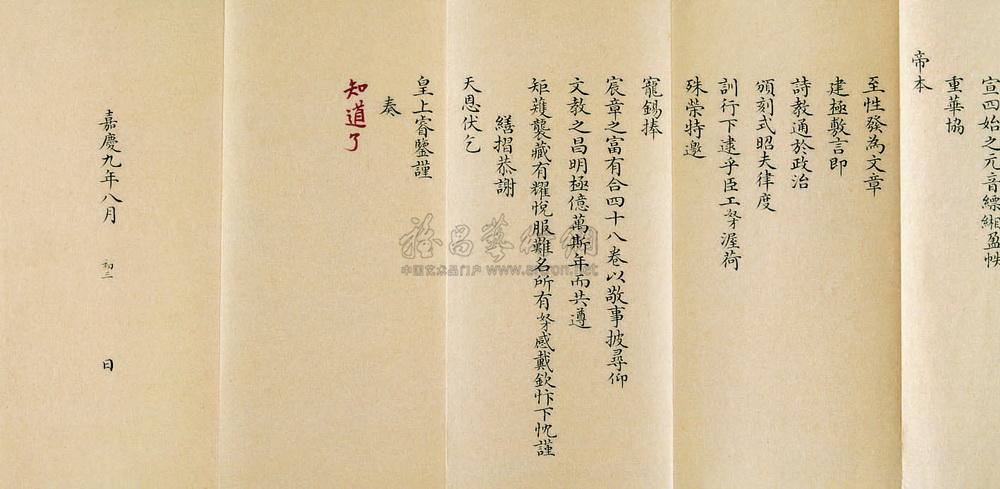 宣四始之元音縹緗盈帙
重華協
帝本
至性發為文章
建極敷言即
詩教通於政治
頒刻式昭夫律度
訓行下逮乎臣工孥渥荷
殊荣特邀
寵錫捧
宸章之富有合四十八卷以敬事披尋仰
文教之昌明極億萬斯年而共遵
矩薙襲藏有耀悅服難名所有孥感戴欽忭下忱謹
繕摺恭謝
天恩伏乞
皇上睿鑒謹
奏
知道了
嘉慶九年八月 初二 日
中国艺术品门户 www.artron.net